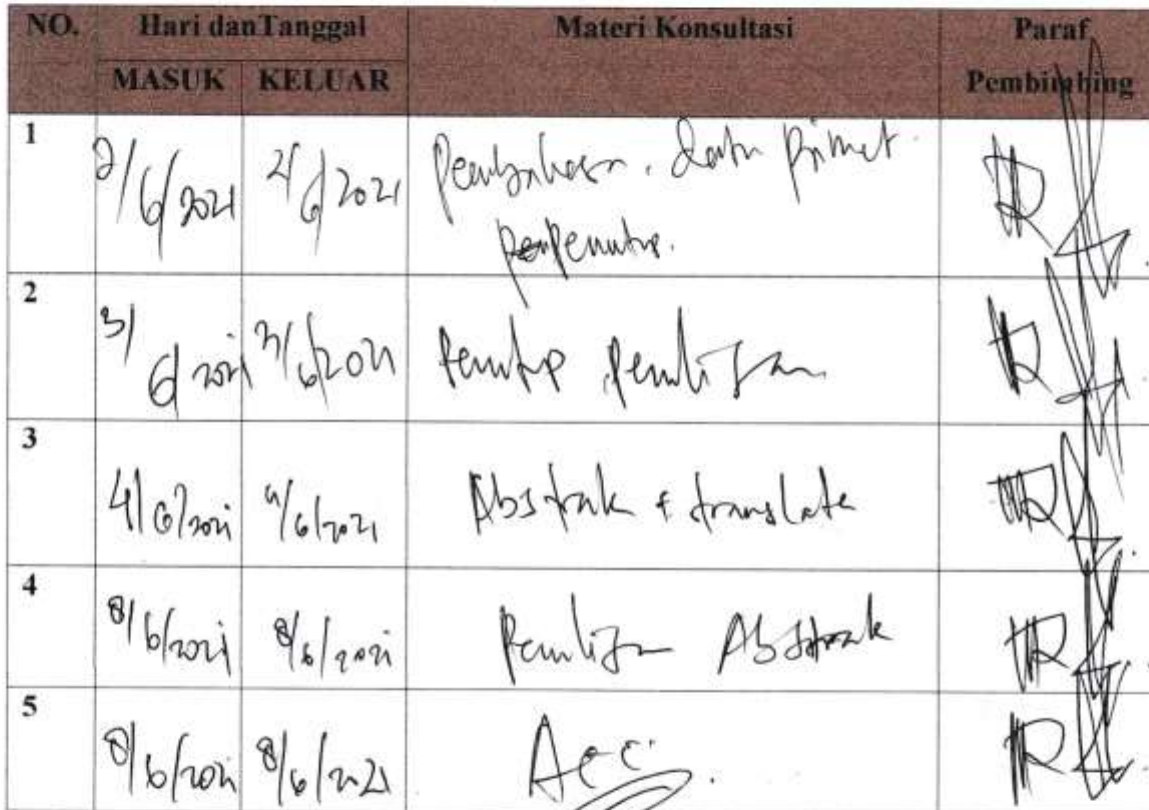 NO. Hari dan Tanggal Materi Konsultasi Paraf
MASUK KELUAR Pembimbing
1 2/6/2021 2/6/2021 Pembahasan. data primet.
2 3/6/2021 3/6/2021 Penutup Penulisan
3 4/6/2021 4/6/2021 Abstrak + translate
4 8/6/2021 8/6/2021 Penulisan Abstrak
5 8/6/2021 8/6/2021 Acc.